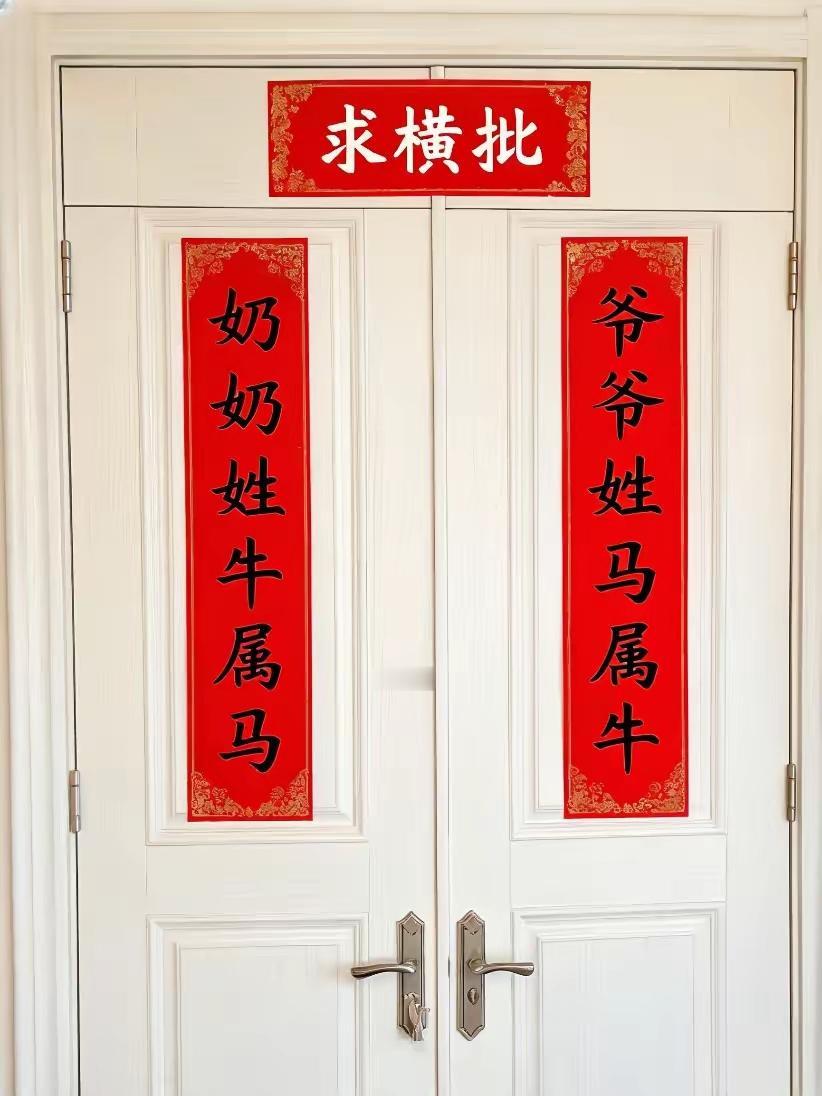 求横批
爷爷姓马属牛
奶奶姓牛属马